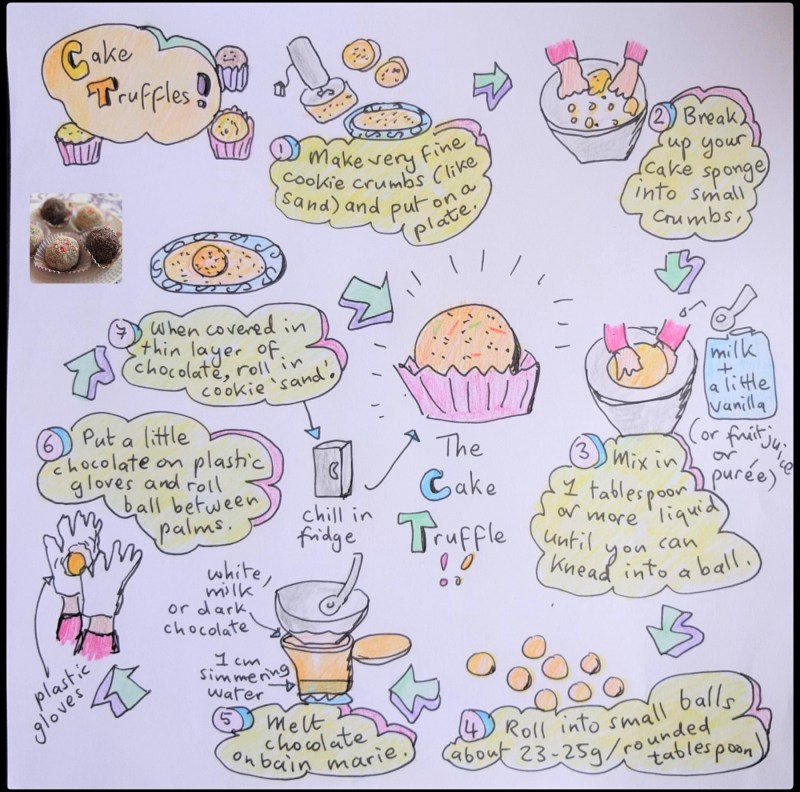 Cake
Truffles!
1 Make very fine
cookie crumbs (like
sand) and put on a
plate.
2 Break
up your
cake sponge
into small
crumbs.
milk
+
a little
vanilla
(or fruit juice
or
purée)
3 Mix in
1 tablespoon
or more liquid
until you can
knead into a ball.
4 Roll into small balls
about 23-25g/rounded
tablespoon)
white,
milk
or dark
chocolate
1cm
simmering
water
5 Melt
chocolate
on bain marie.
plastic
gloves
6 Put a little
chocolate on plastic
gloves and roll
ball between
palms.
7 When covered in
thin layer of
chocolate, roll in
cookie 'sand'.
chill in
fridge
The
Cake
Truffle
!!